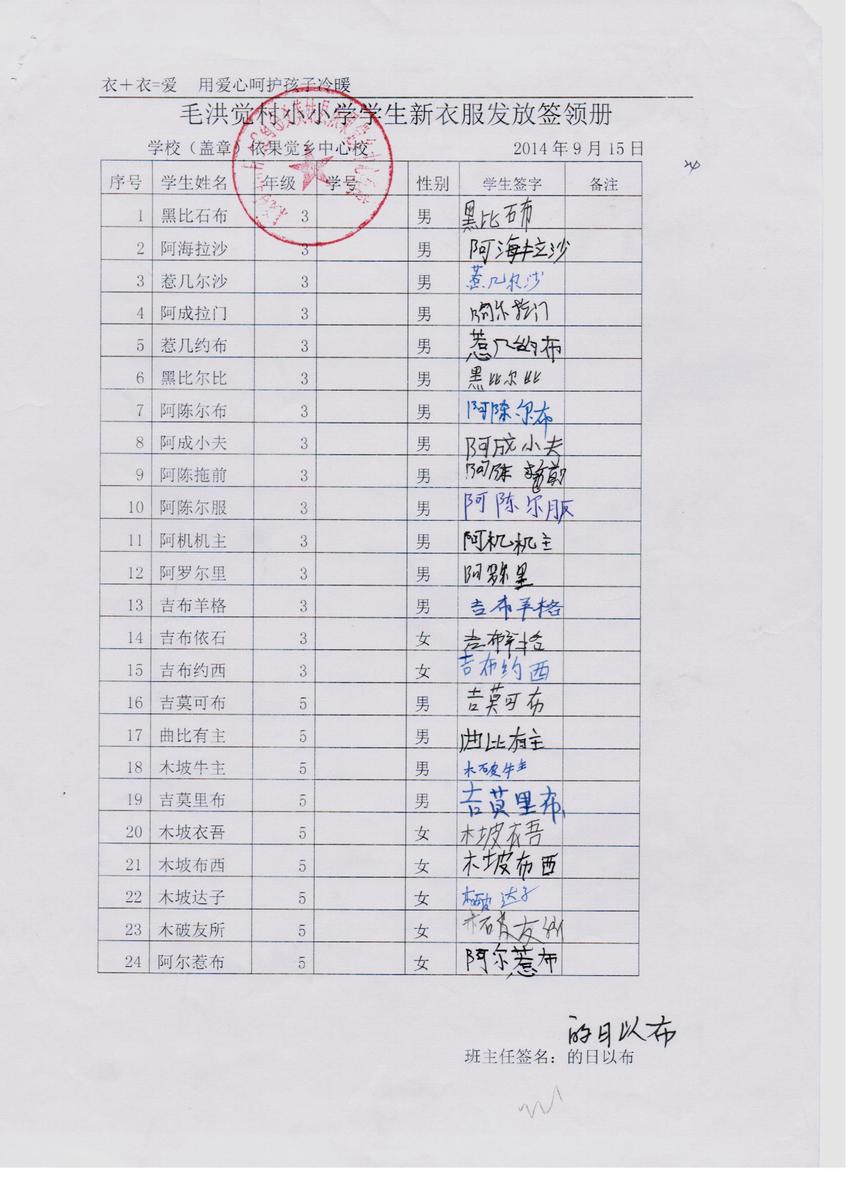 衣＋衣=爱 用爱心呵护孩子冷暖
毛洪觉村小小学学生新衣服发放签领册
学校（盖章）依果觉乡中心校 2014年9月15日
序号 学生姓名 年级 学号 性别 学生签字 备注
1 黑比石布 3 男 黑比石布
2 阿海拉沙 3 男 阿海拉沙
3 惹几尔沙 3 男 惹几尔沙
4 阿成拉门 3 男
5 惹几约布 3 男 惹几约布
6 黑比尔比 3 男 黑比尔比
7 阿陈尔布 3 男 阿陈尔布
8 阿成小夫 3 男 阿成小夫
9 阿陈拖前 3 男 阿陈
10 阿陈尔服 3 男 阿陈尔服
11 阿机机主 3 男 阿机机主
12 阿罗尔里 3 男 阿罗尔里
13 吉布羊格 3 男 吉布羊格
14 吉布依石 3 女 吉布
15 吉布约西 3 女 吉布约西
16 吉莫可布 5 男 吉莫可布
17 曲比有主 5 男 曲比有主
18 木坡牛主 5 男 木破牛主
19 吉莫里布 5 男 吉莫里布
20 木坡衣吾 5 女 木坡衣吾
21 木坡布西 5 女 木坡布西
22 木坡达子 5 女 木破达子
23 木破友所 5 女
24 阿尔惹布 5 女 阿尔惹布
的日以布
班主任签名：的日以布